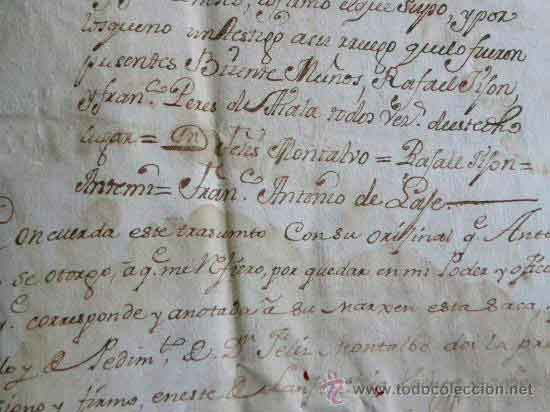 lo firmó el que supo, y por
los que no un testigo a su ruego que lo fueron
presentes Bisente Muñoz, Rafael Tison,
y Fran.co Peres de Maia todos vez.s de este dho
Lugar = Dn Felis Montalvo = Rafael Tison =
Antemi = Fran.co Antonio de Lase.
Concuerda este trasumto Con su orijinal q.e Ante
se otorgó, à q.e me refiero, por quedar en mi Poder y ofic
q.e corresponde y anotada à su marxen esta saca,
y de Pedim.to de Dn Feliz Montalbo doi la pre
signo y firmo, en este de
todocoleccion
www.todocoleccion.net